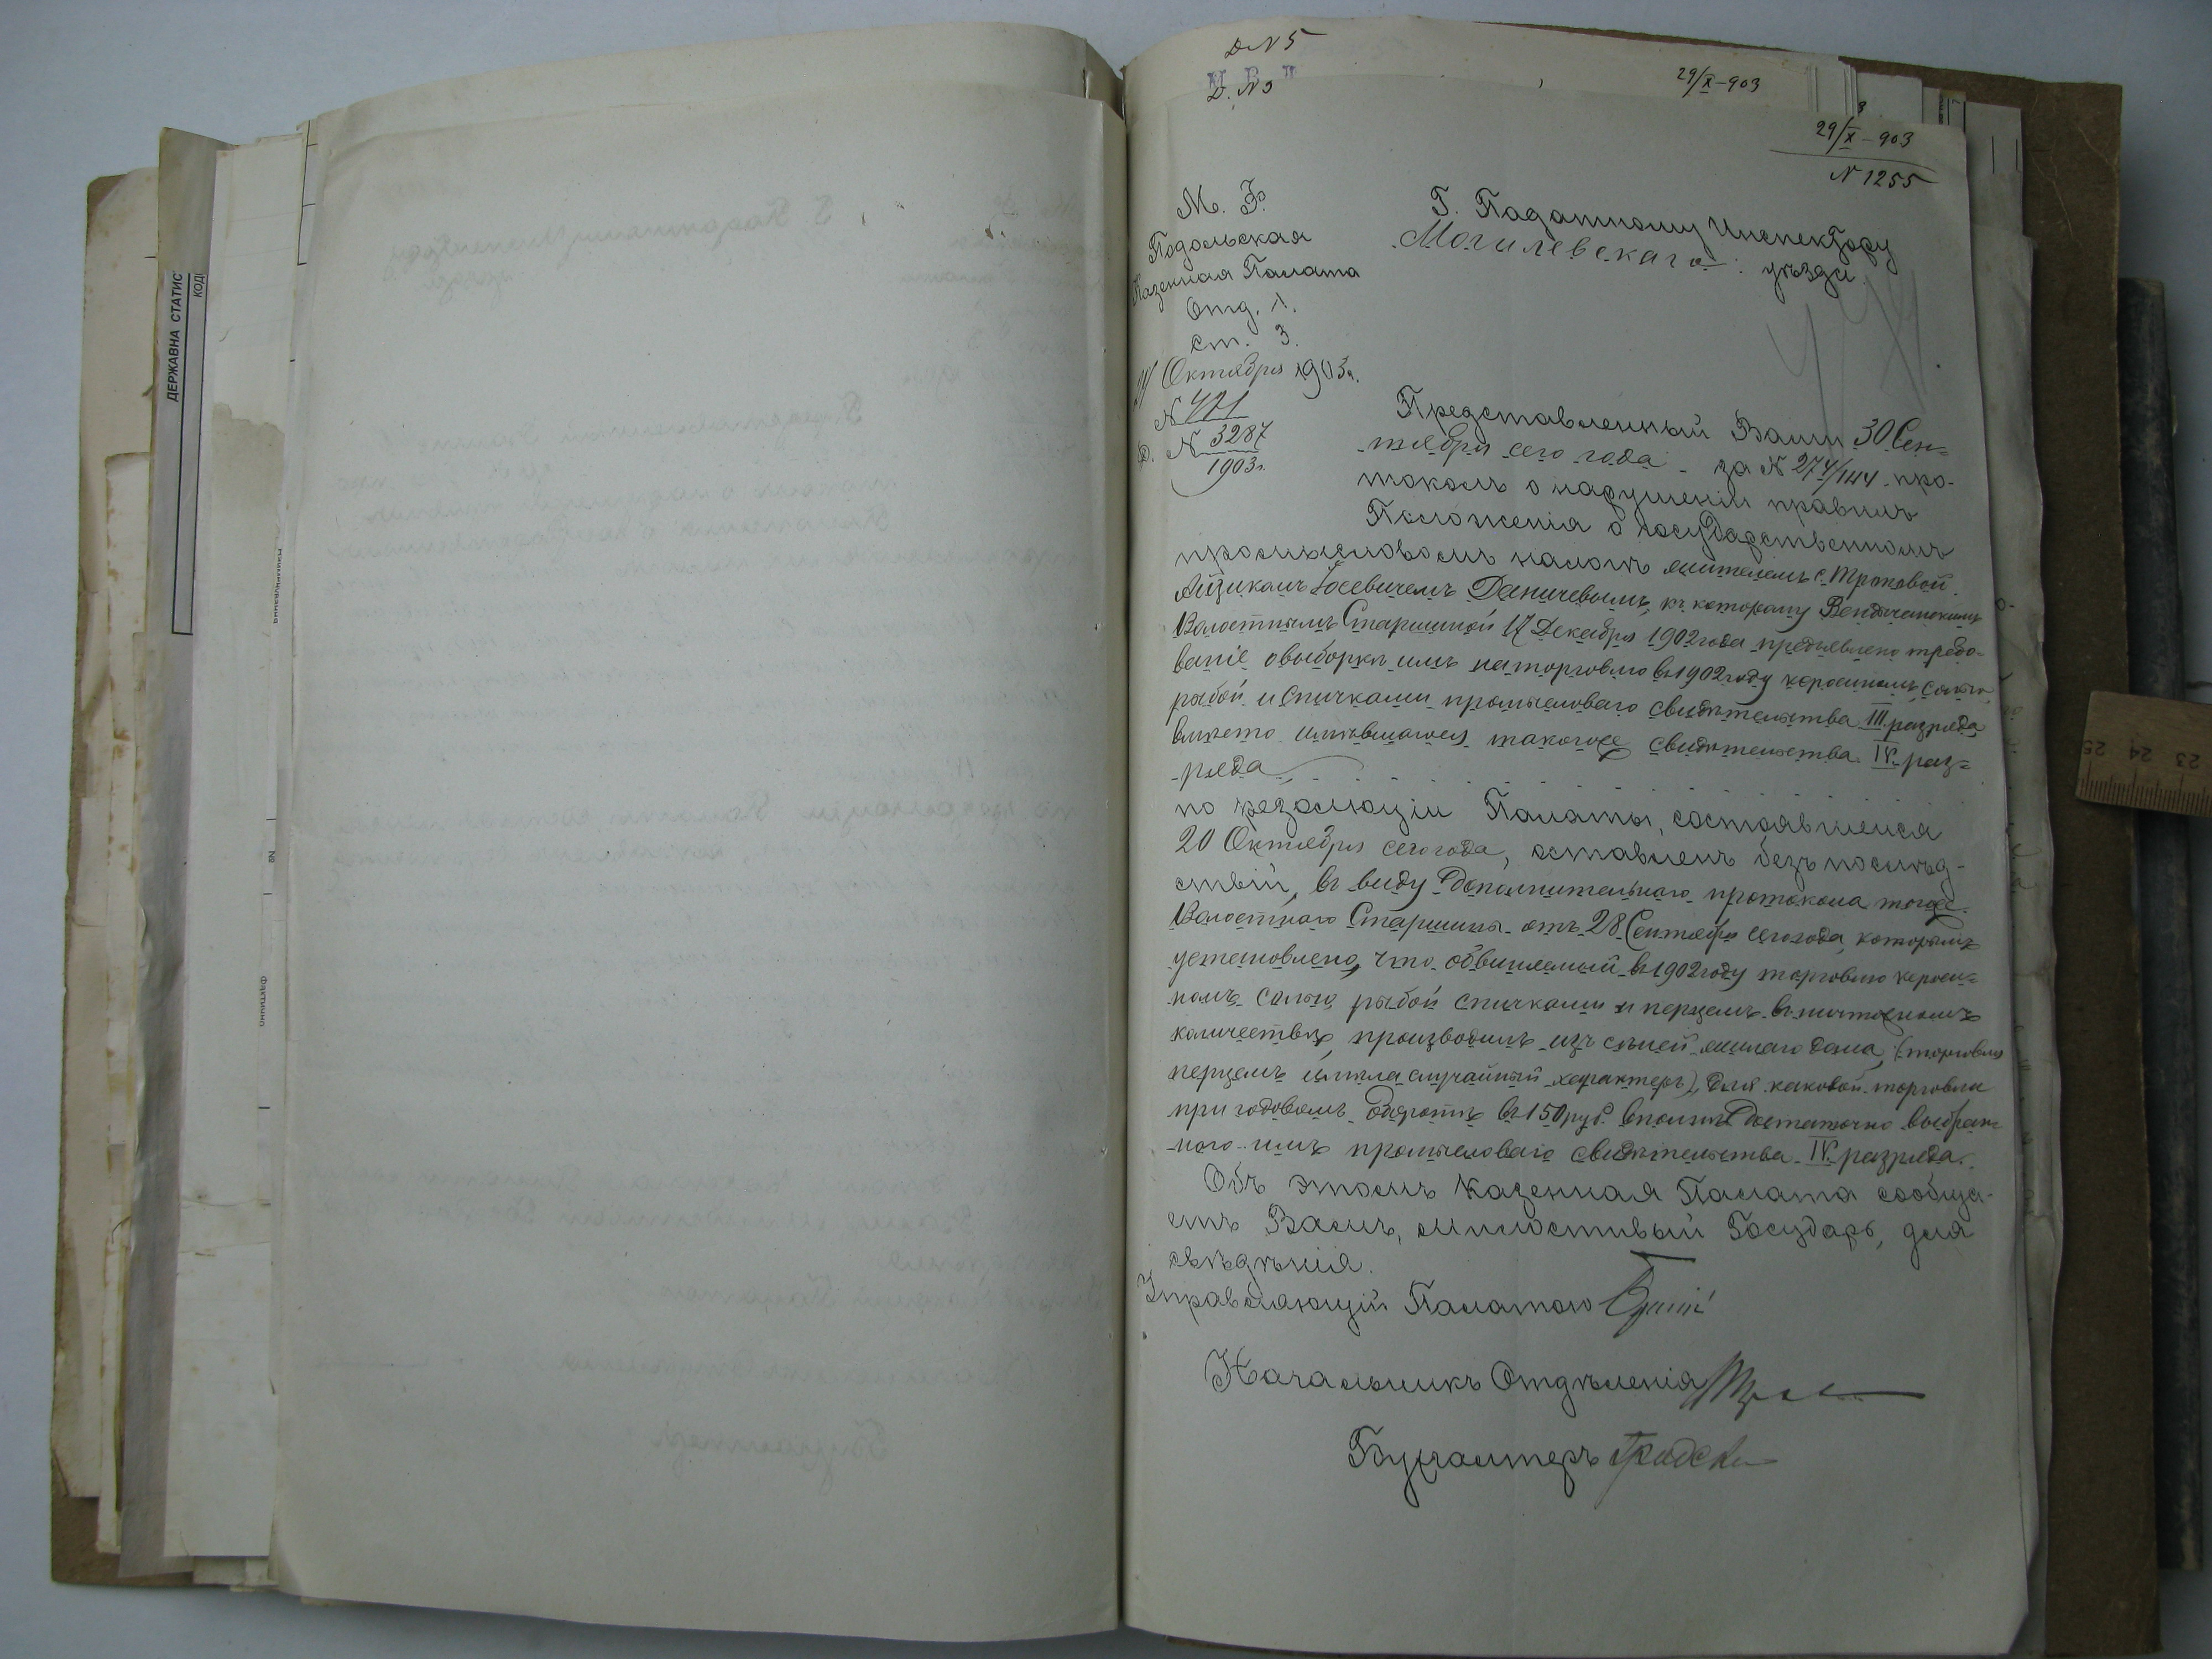 ДЕРЖАВНА СТАТИС
КОД
№
Д. N 5
29/X-903
Д. N 5
29/X-903
N 1255
М. Ф.
Подольская
Казенная Палата
Отд. 1.
ст. 3.
Октября 1903г.
N 421
Д. N 3287
1903г.
Г. Податному Инспектору
Могилевскаго уѣзда.
Представленный Вами 30 Сен-
тября сего года за N 274/144 про-
токолъ о нарушеніи правилъ
Положенія о государственномъ
промысловомъ налогѣ жителемъ с. Троповой
Айзикомъ Іосевичемъ Даничевымъ, къ которому Вендичанскимъ
Волостнымъ Старшиной 17 Декабря 1902 года предъявлено требо-
ваніе о выборкѣ имъ на торговлю въ 1902 году керосиномъ, солью,
рыбой и спичками промысловаго свидѣтельства III разряда
вмѣсто имѣвшагося такогоже свидѣтельства IV раз-
ряда
по резолюціи Палаты, состоявшейся
20 Октября сего года, оставленъ безъ послѣд-
ствій, въ виду дополнительнаго протокола тогоже
Волостнаго Старшины отъ 28 Сентября сего года, которымъ
установлено, что обвиняемый въ 1902 году торговлю кероси-
номъ солью, рыбой спичками и перцемъ въ ничтожномъ
количествѣ, производилъ изъ сѣней жилаго дома, (торговля
перцемъ имѣла случайный характеръ), для каковой торговли
при годовомъ оборотѣ въ 150 руб. вполнѣ достаточно выбран-
наго имъ промысловаго свидѣтельства IV разряда.
Объ этомъ Казенная Палата сообща-
етъ Вамъ, Милостивый Государь, для
свѣдѣнія.
Управляющій Палатою
Начальникъ Отдѣленія
Бухгалтеръ
23 24 25